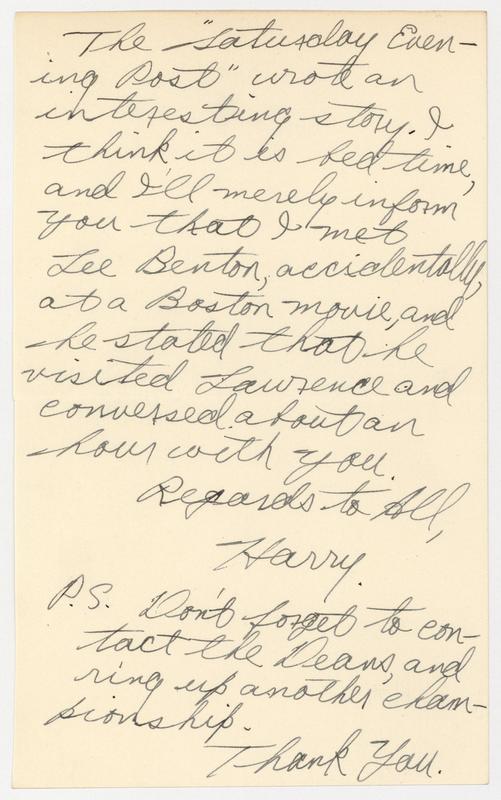 The "Saturday Even-
ing Post" wrote an
interesting story. I
think it is bed time,
and I'll merely inform
you that I met
Lee Benton, accidentally,
at a Boston movie, and
he stated that he
visited Lawrence and
conversed about an
hour with you.
Regards to All,
Harry.
P.S. Don't forget to con-
tact the Deans, and
ring up another cham-
pionship.
Thank You.